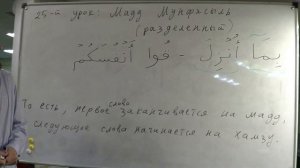 25-й урок: Мадд Мунфасыль
(разделенный)
بِمَا أُنْزِلَ - قُوا أَنْفُسَكُمْ
То есть, первое слово заканчивается на мадд,
следующие слова начинается на хамзу.